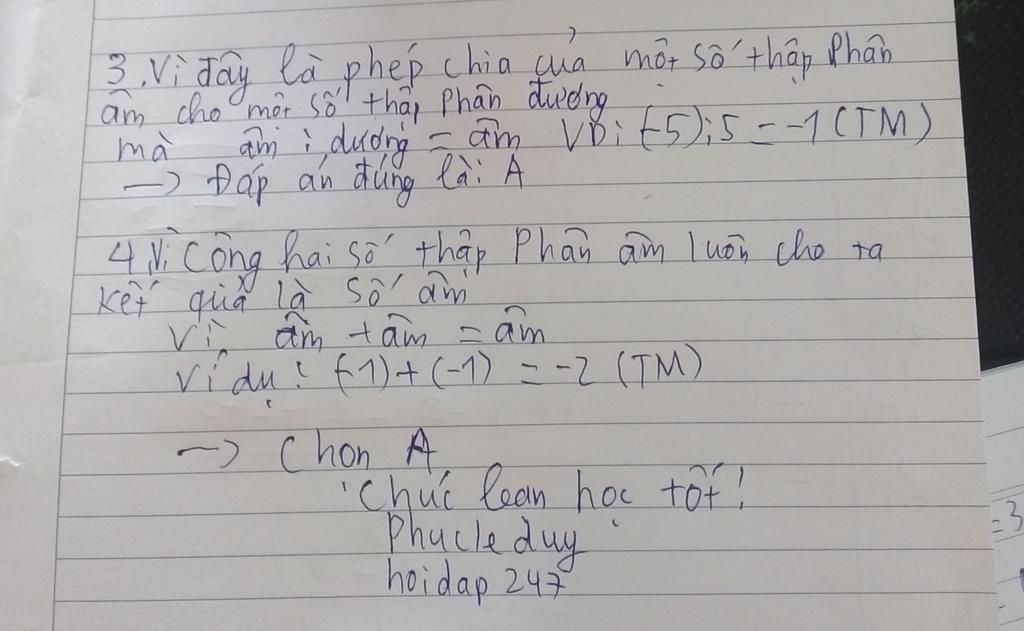 3. Vì đây là phép chia của một số thập phân
âm cho một số thập phân dương
mà âm : dương = âm VD: (-5):5 = -1 (TM)
→ Đáp án đúng là: A
4, Vì cộng hai số thập phân âm luôn cho ra
kết quả là số âm
Vì âm + âm = âm
Ví dụ: (-1) + (-1) = -2 (TM)
→ Chọn A
Chúc bạn học tốt!
Phucleduy
hoidap 247
=3